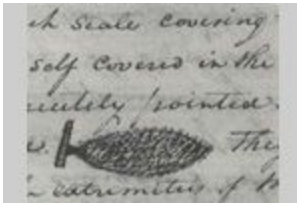 ch scale covering
self covered in the
pointed
The
extremities of